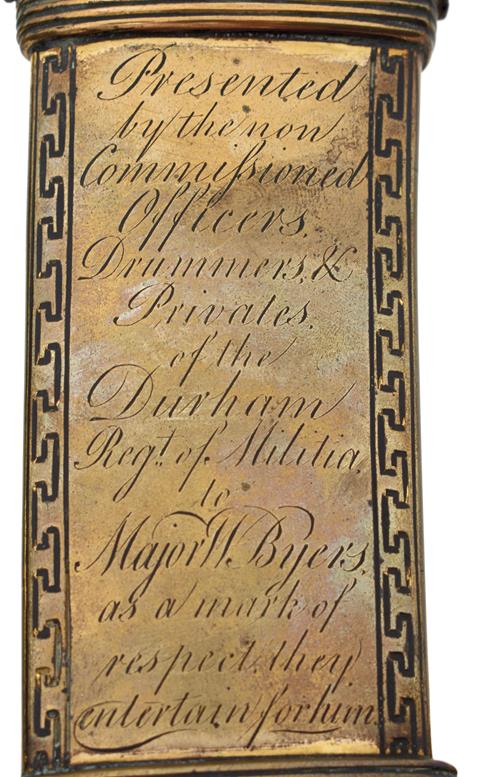 Presented
by the non
Commiſsioned
Officers,
Drummers, &
Privates,
of the
Durham
Regt. of Militia,
to
Major W. Byers,
as a mark of
respect they
entertain for him.